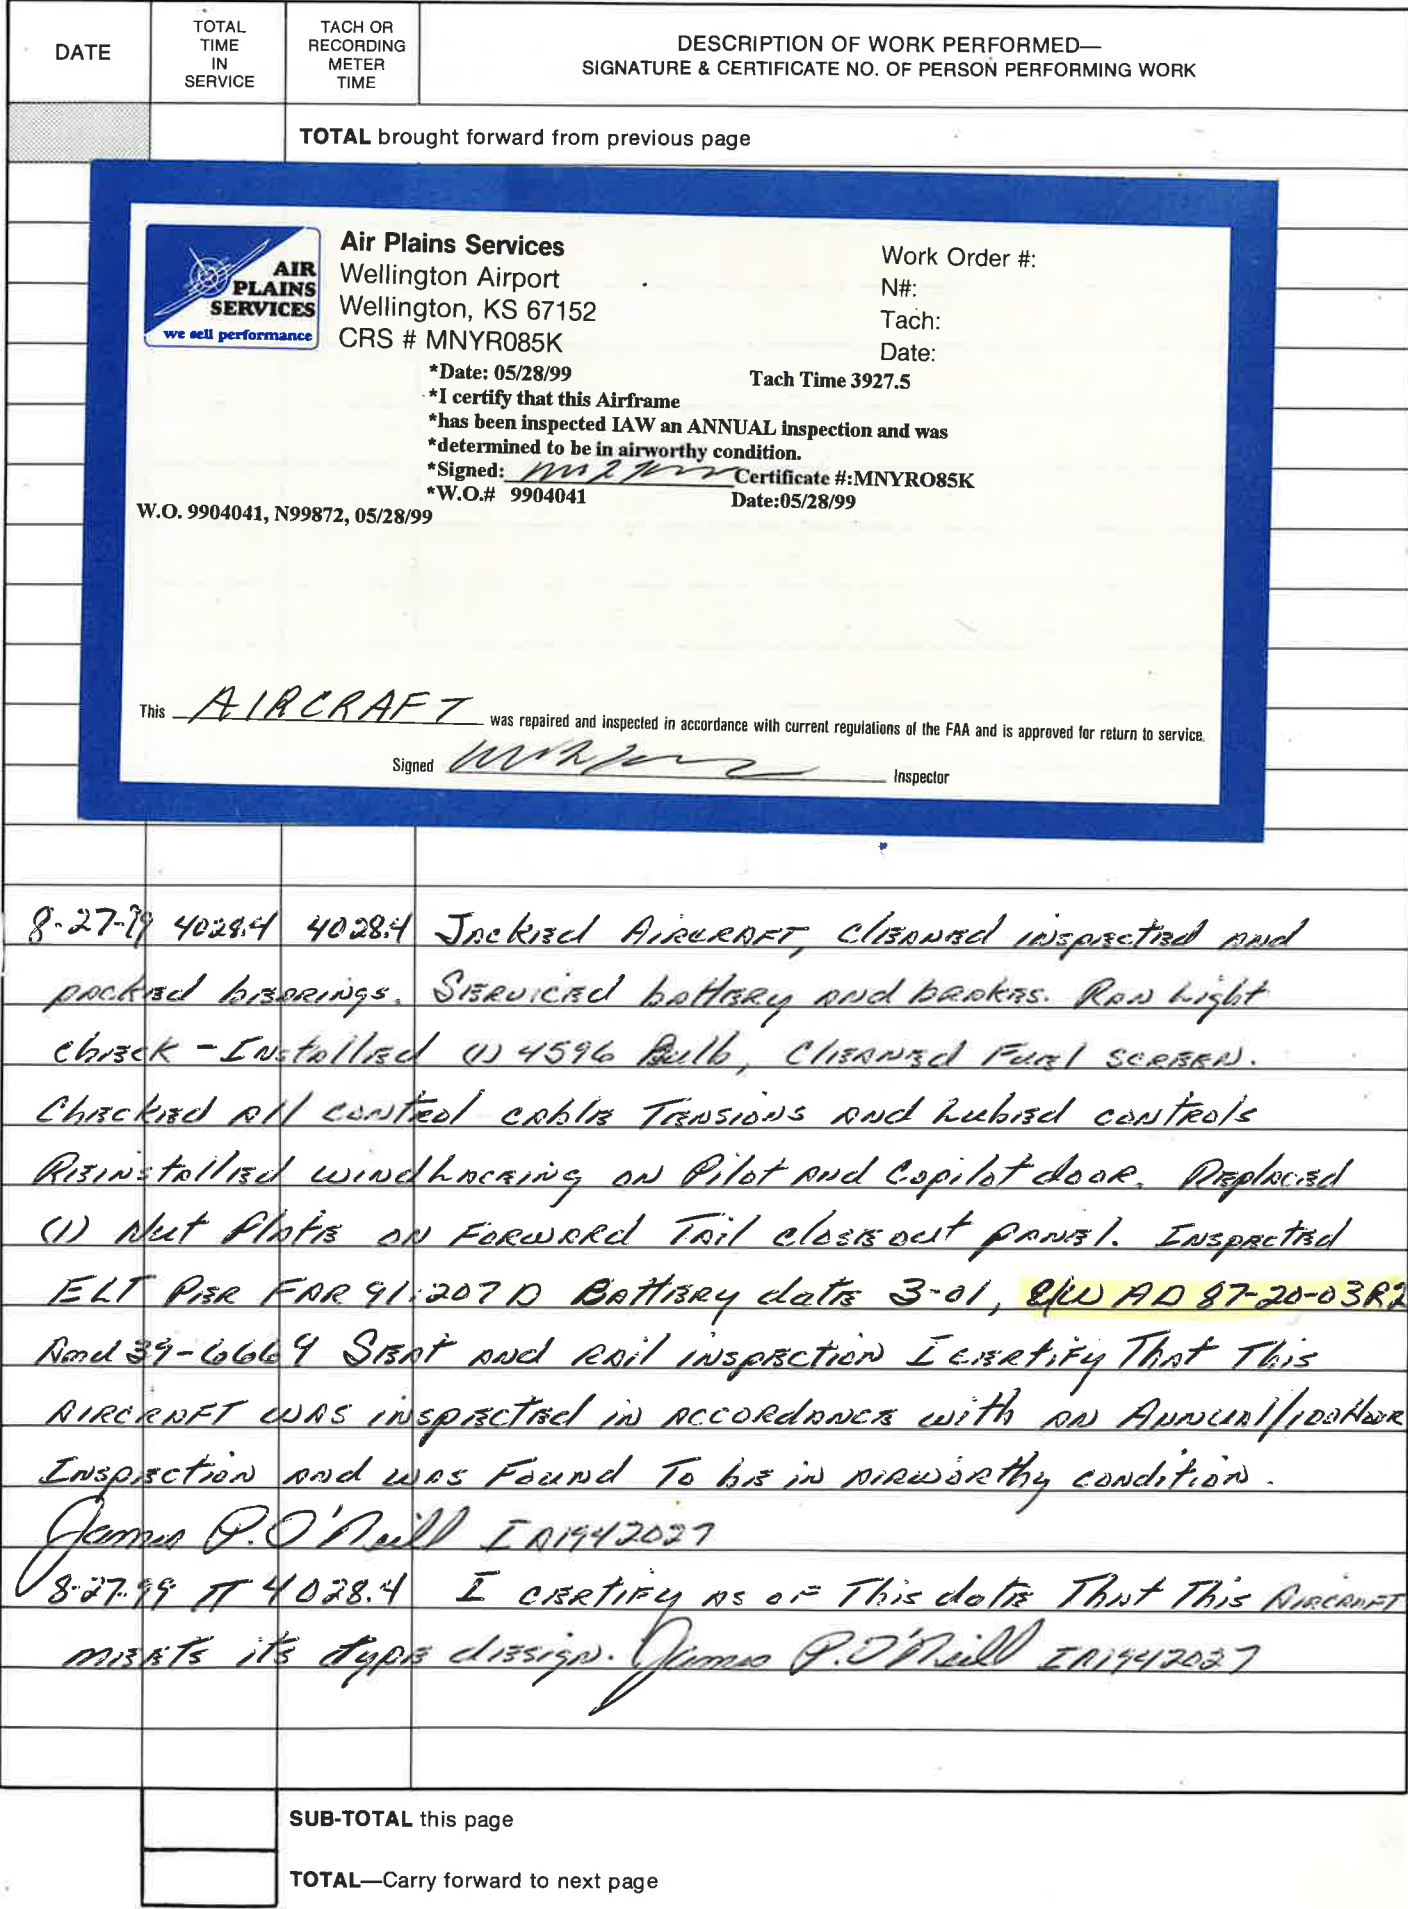 DATE
TOTAL
TIME
IN
SERVICE
TACH OR
RECORDING
METER
TIME
DESCRIPTION OF WORK PERFORMED—
SIGNATURE & CERTIFICATE NO. OF PERSON PERFORMING WORK
TOTAL brought forward from previous page
AIR
PLAINS
SERVICES
we sell performance
Air Plains Services
Wellington Airport
Wellington, KS 67152
CRS # MNYR085K
Work Order #:
N#:
Tach:
Date:
*Date: 05/28/99 Tach Time 3927.5
*I certify that this Airframe
*has been inspected IAW an ANNUAL inspection and was
*determined to be in airworthy condition.
*Signed: Certificate #:MNYRO85K
*W.O.# 9904041 Date:05/28/99
W.O. 9904041, N99872, 05/28/99
This AIRCRAFT was repaired and inspected in accordance with current regulations of the FAA and is approved for return to service.
Signed Inspector
8-27-99 4028.4 4028.4 Jacked Aircraft, cleaned inspected and
packed bearings. Serviced battery and brakes. Ran Light
check - Installed (1) 4596 Bulb, Cleaned Fuel screen.
Checked all control cable Tensions and Lubed controls
Reinstalled windlaceing on Pilot and Copilot door. Replaced
(1) Nut Plate on Forward Tail closeout panel. Inspected
ELT Per FAR 91.207 D Battery date 3-01, C/W AD 87-20-03R2
Amd 39-6669 Seat and rail inspection I certify That This
Aircraft was inspected in accordance with an Annual/100 Hour
Inspection and was Found To be in airworthy condition.
James P. O'Neill IA1942027
8-27-99 TT 4028.4 I certify as of This date That This Aircraft
meets its type design. James P. O'Neill IA1942027
SUB-TOTAL this page
TOTAL—Carry forward to next page